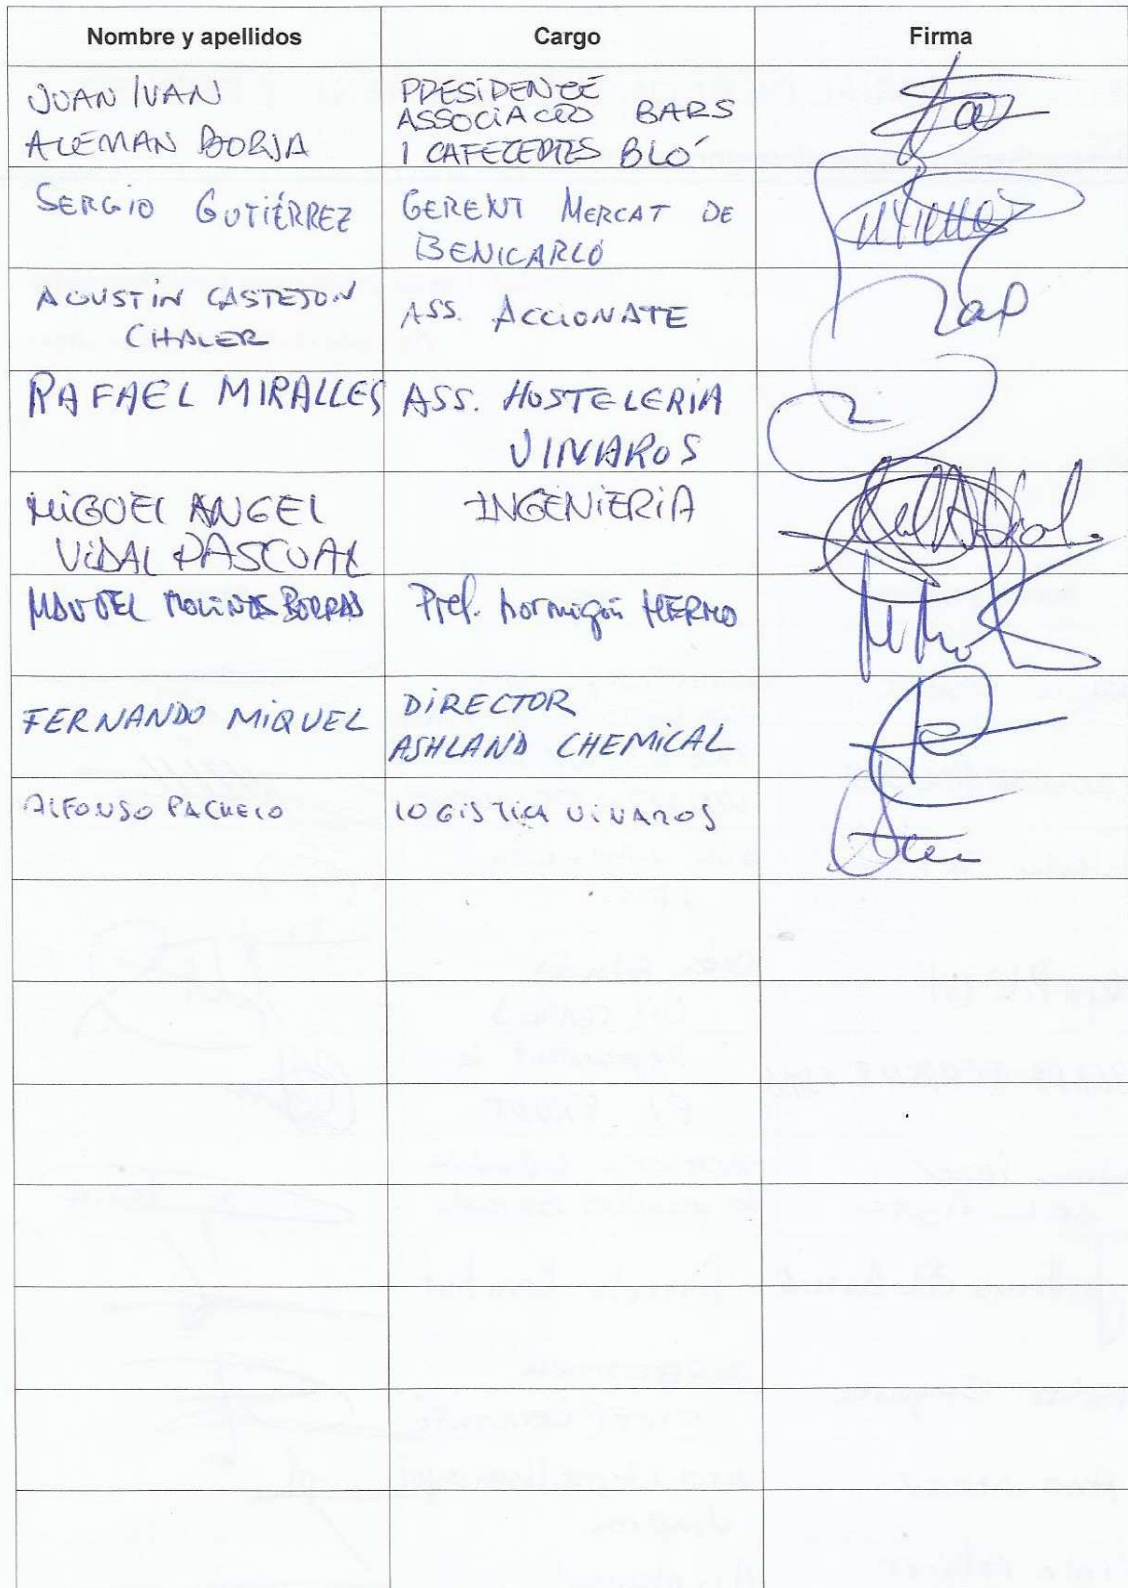 Nombre y apellidos Cargo Firma
JUAN IVAN
ALEMAN BORJA
PRESIDENTE
ASSOCIACIÓ BARS
I CAFETERIES BLÓ
SERGIO GUTIÉRREZ
GERENT MERCAT DE
BENICARLÓ
AGUSTÍN CASTEJON
CHALER
ASS. ACCIONATE
RAFAEL MIRALLES
ASS. HOSTELERIA
VINAROS
MIGUEL ANGEL
VIDAL PASCUAL
INGENIERIA
MANUEL MOLINOS BORRAS
Pref. hormigón HERMO
FERNANDO MIQUEL
DIRECTOR
ASHLAND CHEMICAL
ALFONSO PACHECO
LOGISTICA VINAROS